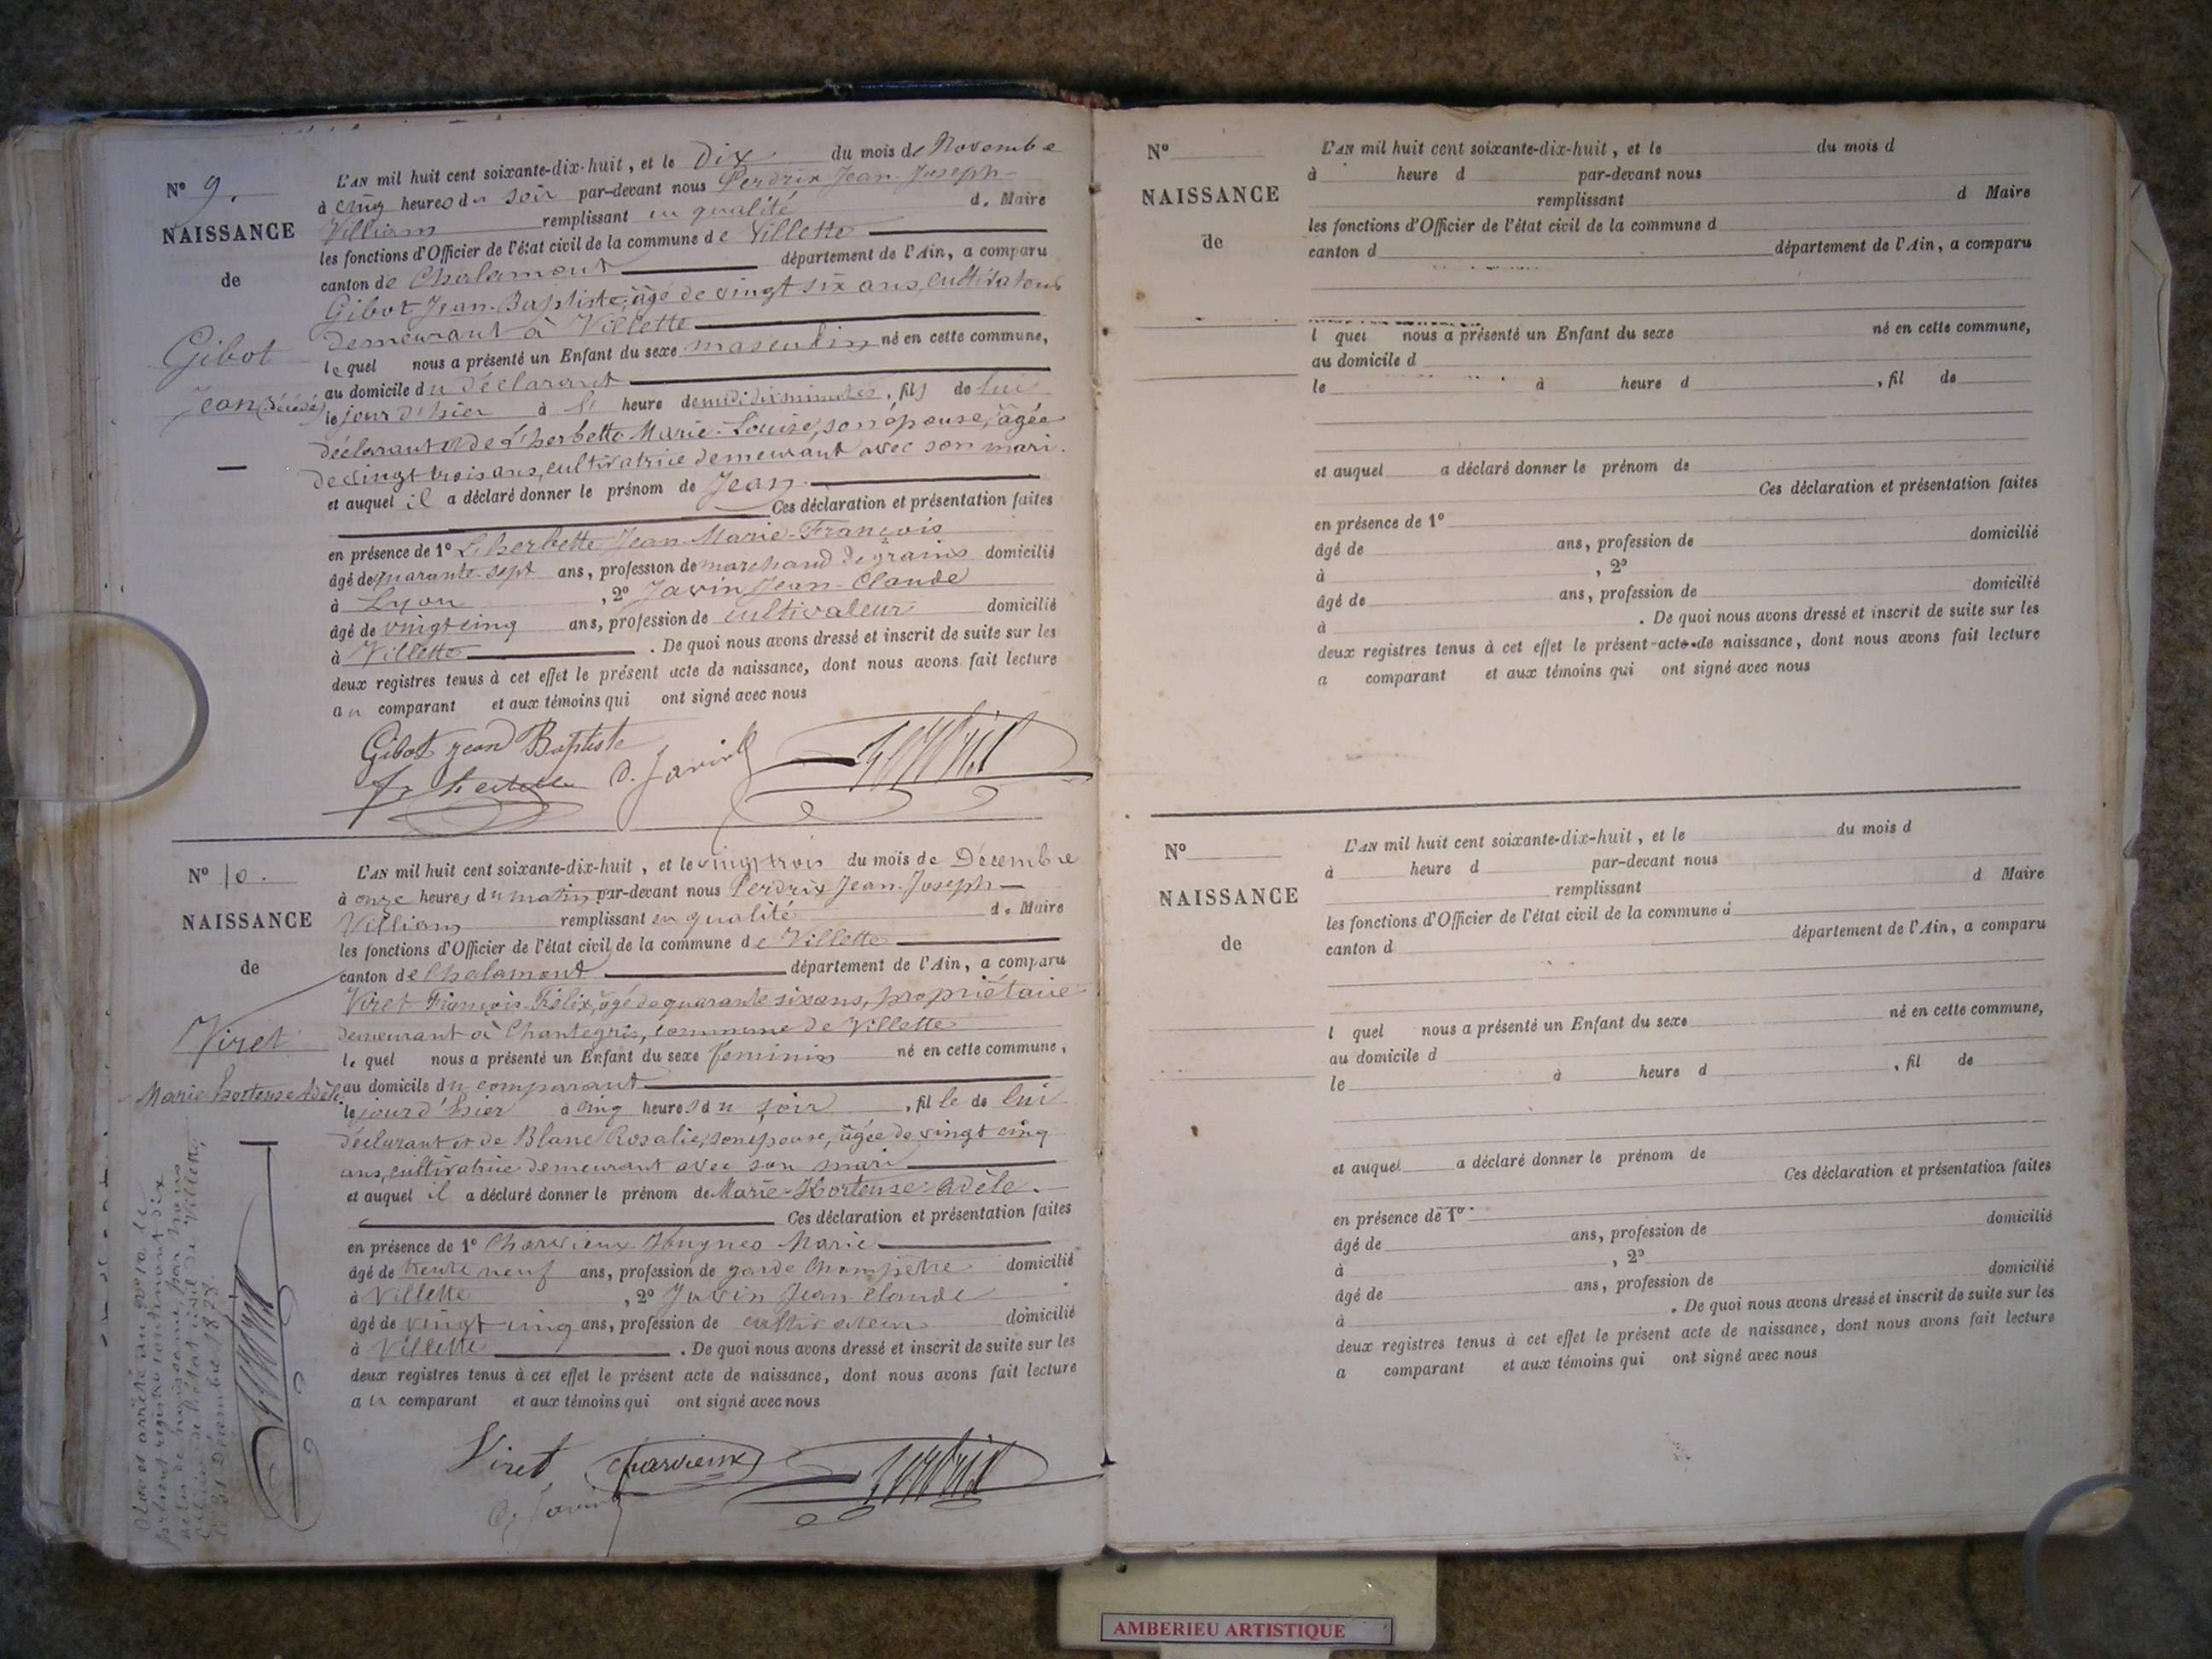 N° 9.
NAISSANCE
de
Gibot
Jean (décédé)
L'AN mil huit cent soixante-dix-huit, et le Dix du mois de Novembre
à cinq heures du soir par-devant nous Perdrix Jean-Joseph-
Villiam remplissant en qualité de Maire
les fonctions d'Officier de l'état civil de la commune de Villette
canton de Chalamont département de l'Ain, a comparu
Gibot Jean-Baptiste, âgé de vingt six ans, cultivateur
demeurant à Villette
lequel nous a présenté un Enfant du sexe masculin né en cette commune,
au domicile du déclarant
le jour d'hier à heure demidi dix minutes, fils de lui
déclarant et de L'herbette Marie-Louise, son épouse, âgée
de vingt trois ans, cultivatrice demeurant avec son mari.
et auquel il a déclaré donner le prénom de Jean
Ces déclaration et présentation faites
en présence de 1° Lherbette Jean-Marie-François
âgé de quarante-sept ans, profession de marchand de grains domicilié
à Lyon, 2° Javin Jean-Claude
âgé de vingt cinq ans, profession de cultivateur domicilié
à Villette. De quoi nous avons dressé et inscrit de suite sur les
deux registres tenus à cet effet le présent acte de naissance, dont nous avons fait lecture
au comparant et aux témoins qui ont signé avec nous
Gibot jean Baptiste
C. Javin
N° 10.
NAISSANCE
de
Viret
Marie hortense Adèle
L'AN mil huit cent soixante-dix-huit, et le vingt trois du mois de Décembre
à onze heures du matin par-devant nous Perdrix Jean-Joseph-
Villiam remplissant en qualité de Maire
les fonctions d'Officier de l'état civil de la commune de Villette
canton de Chalamont département de l'Ain, a comparu
Viret François-Félix, âgé de quarante six ans, propriétaire
demeurant à Chantegris, commune de Villette
lequel nous a présenté un Enfant du sexe féminin né en cette commune,
au domicile du comparant
le jour d'hier à cinq heures du soir, fille de lui
déclarant et de Blanc Rosalie, son épouse, âgée de vingt cinq
ans, cultivatrice demeurant avec son mari
et auquel il a déclaré donner le prénom de Marie-Hortense-Adèle.
Ces déclaration et présentation faites
en présence de 1° Charvieux Marie
âgé de trente neuf ans, profession de garde Champêtre domicilié
à Villette, 2° Javin Jean Claude
âgé de vingt cinq ans, profession de cultivateur domicilié
à Villette. De quoi nous avons dressé et inscrit de suite sur les
deux registres tenus à cet effet le présent acte de naissance, dont nous avons fait lecture
au comparant et aux témoins qui ont signé avec nous
Viret Charvieux
C. Javin
Clos et arrêté au n° 10 le
présent registre contenant dix
actes de naissance, par nous
Officier de l'état civil de Villette,
le 31 Décembre 1878.
N°
NAISSANCE
de
L'AN mil huit cent soixante-dix-huit, et le du mois d
à heure d par-devant nous
remplissant d Maire
les fonctions d'Officier de l'état civil de la commune d
canton d département de l'Ain, a comparu
l quel nous a présenté un Enfant du sexe né en cette commune,
au domicile d
le à heure d, fil de
et auquel a déclaré donner le prénom de
Ces déclaration et présentation faites
en présence de 1°
âgé de ans, profession de domicilié
à, 2°
âgé de ans, profession de domicilié
à. De quoi nous avons dressé et inscrit de suite sur les
deux registres tenus à cet effet le présent acte de naissance, dont nous avons fait lecture
a comparant et aux témoins qui ont signé avec nous
N°
NAISSANCE
de
L'AN mil huit cent soixante-dix-huit, et le du mois d
à heure d par-devant nous
remplissant d Maire
les fonctions d'Officier de l'état civil de la commune d
canton d département de l'Ain, a comparu
l quel nous a présenté un Enfant du sexe né en cette commune,
au domicile d
le à heure d, fil de
et auquel a déclaré donner le prénom de
Ces déclaration et présentation faites
en présence de 1°
âgé de ans, profession de domicilié
à, 2°
âgé de ans, profession de domicilié
à. De quoi nous avons dressé et inscrit de suite sur les
deux registres tenus à cet effet le présent acte de naissance, dont nous avons fait lecture
a comparant et aux témoins qui ont signé avec nous
AMBERIEU ARTISTIQUE